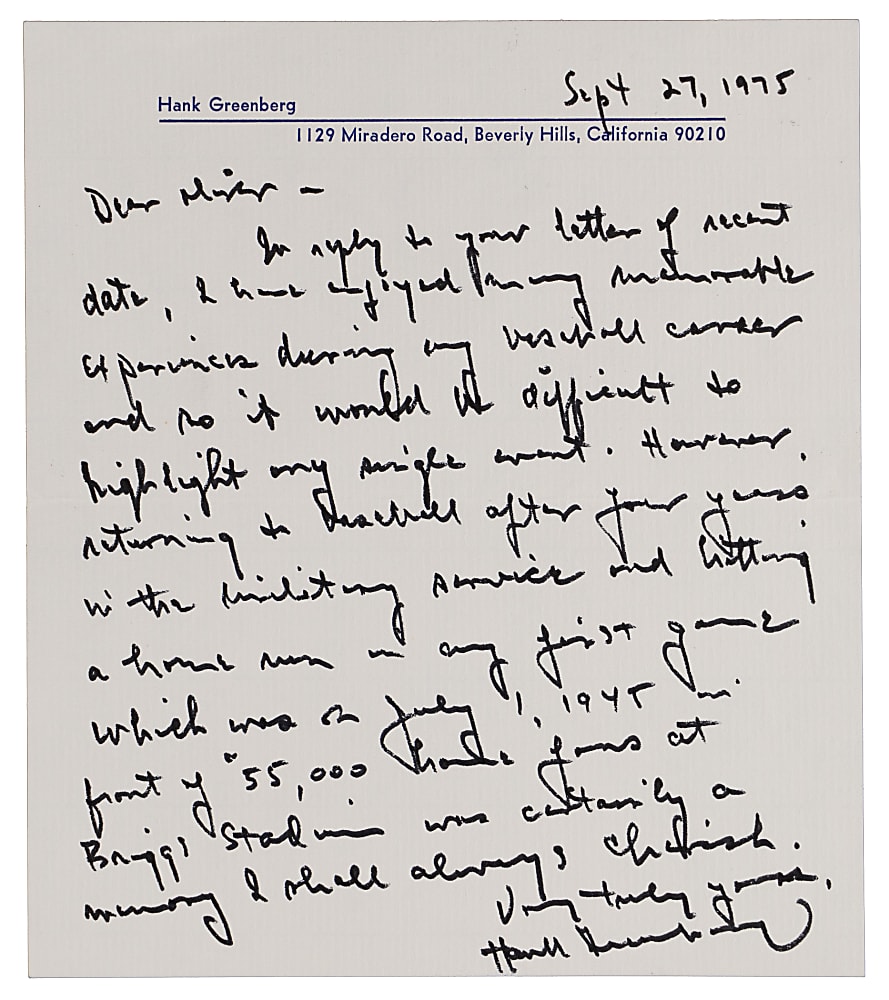 Sept 27, 1975
Hank Greenberg
1129 Miradero Road, Beverly Hills, California 90210
Dear
In reply to your letter of recent
date, I have enjoyed many memorable
experiences during my baseball career
and so it would be difficult to
highlight any single event. However,
returning to baseball after four years
in the military service and hitting
a home run in my first game
which was on July 1, 1945 in
front of "55,000 fans at
Briggs Stadium was certainly a
memory I shall always cherish.
Very truly yours,
Hank Greenberg